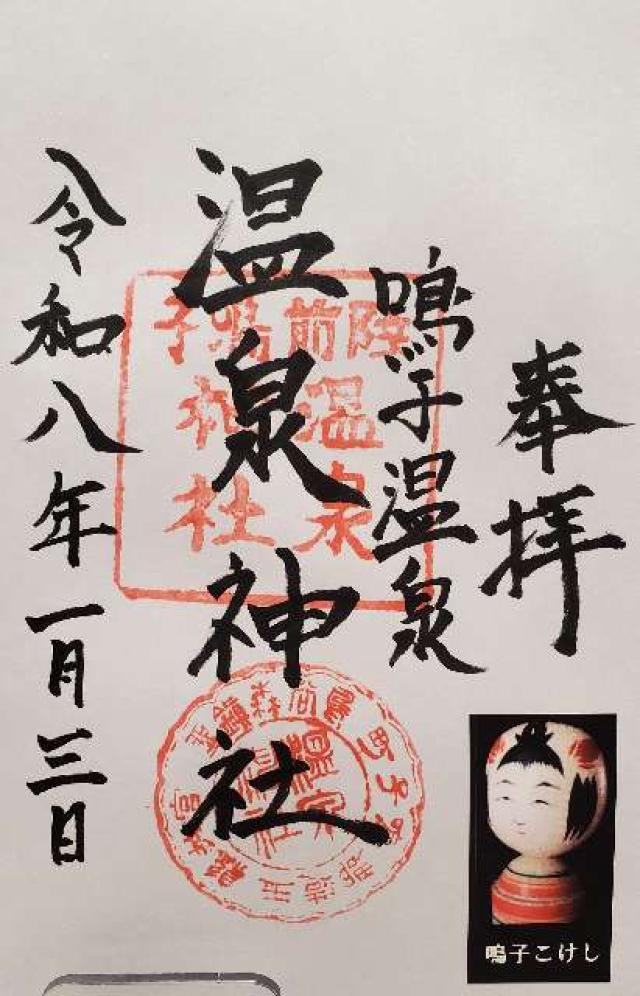 奉拝
鳴子温泉
温泉神社
令和八年一月三日
陸前鳴子
温泉
神社
鳴子こけし